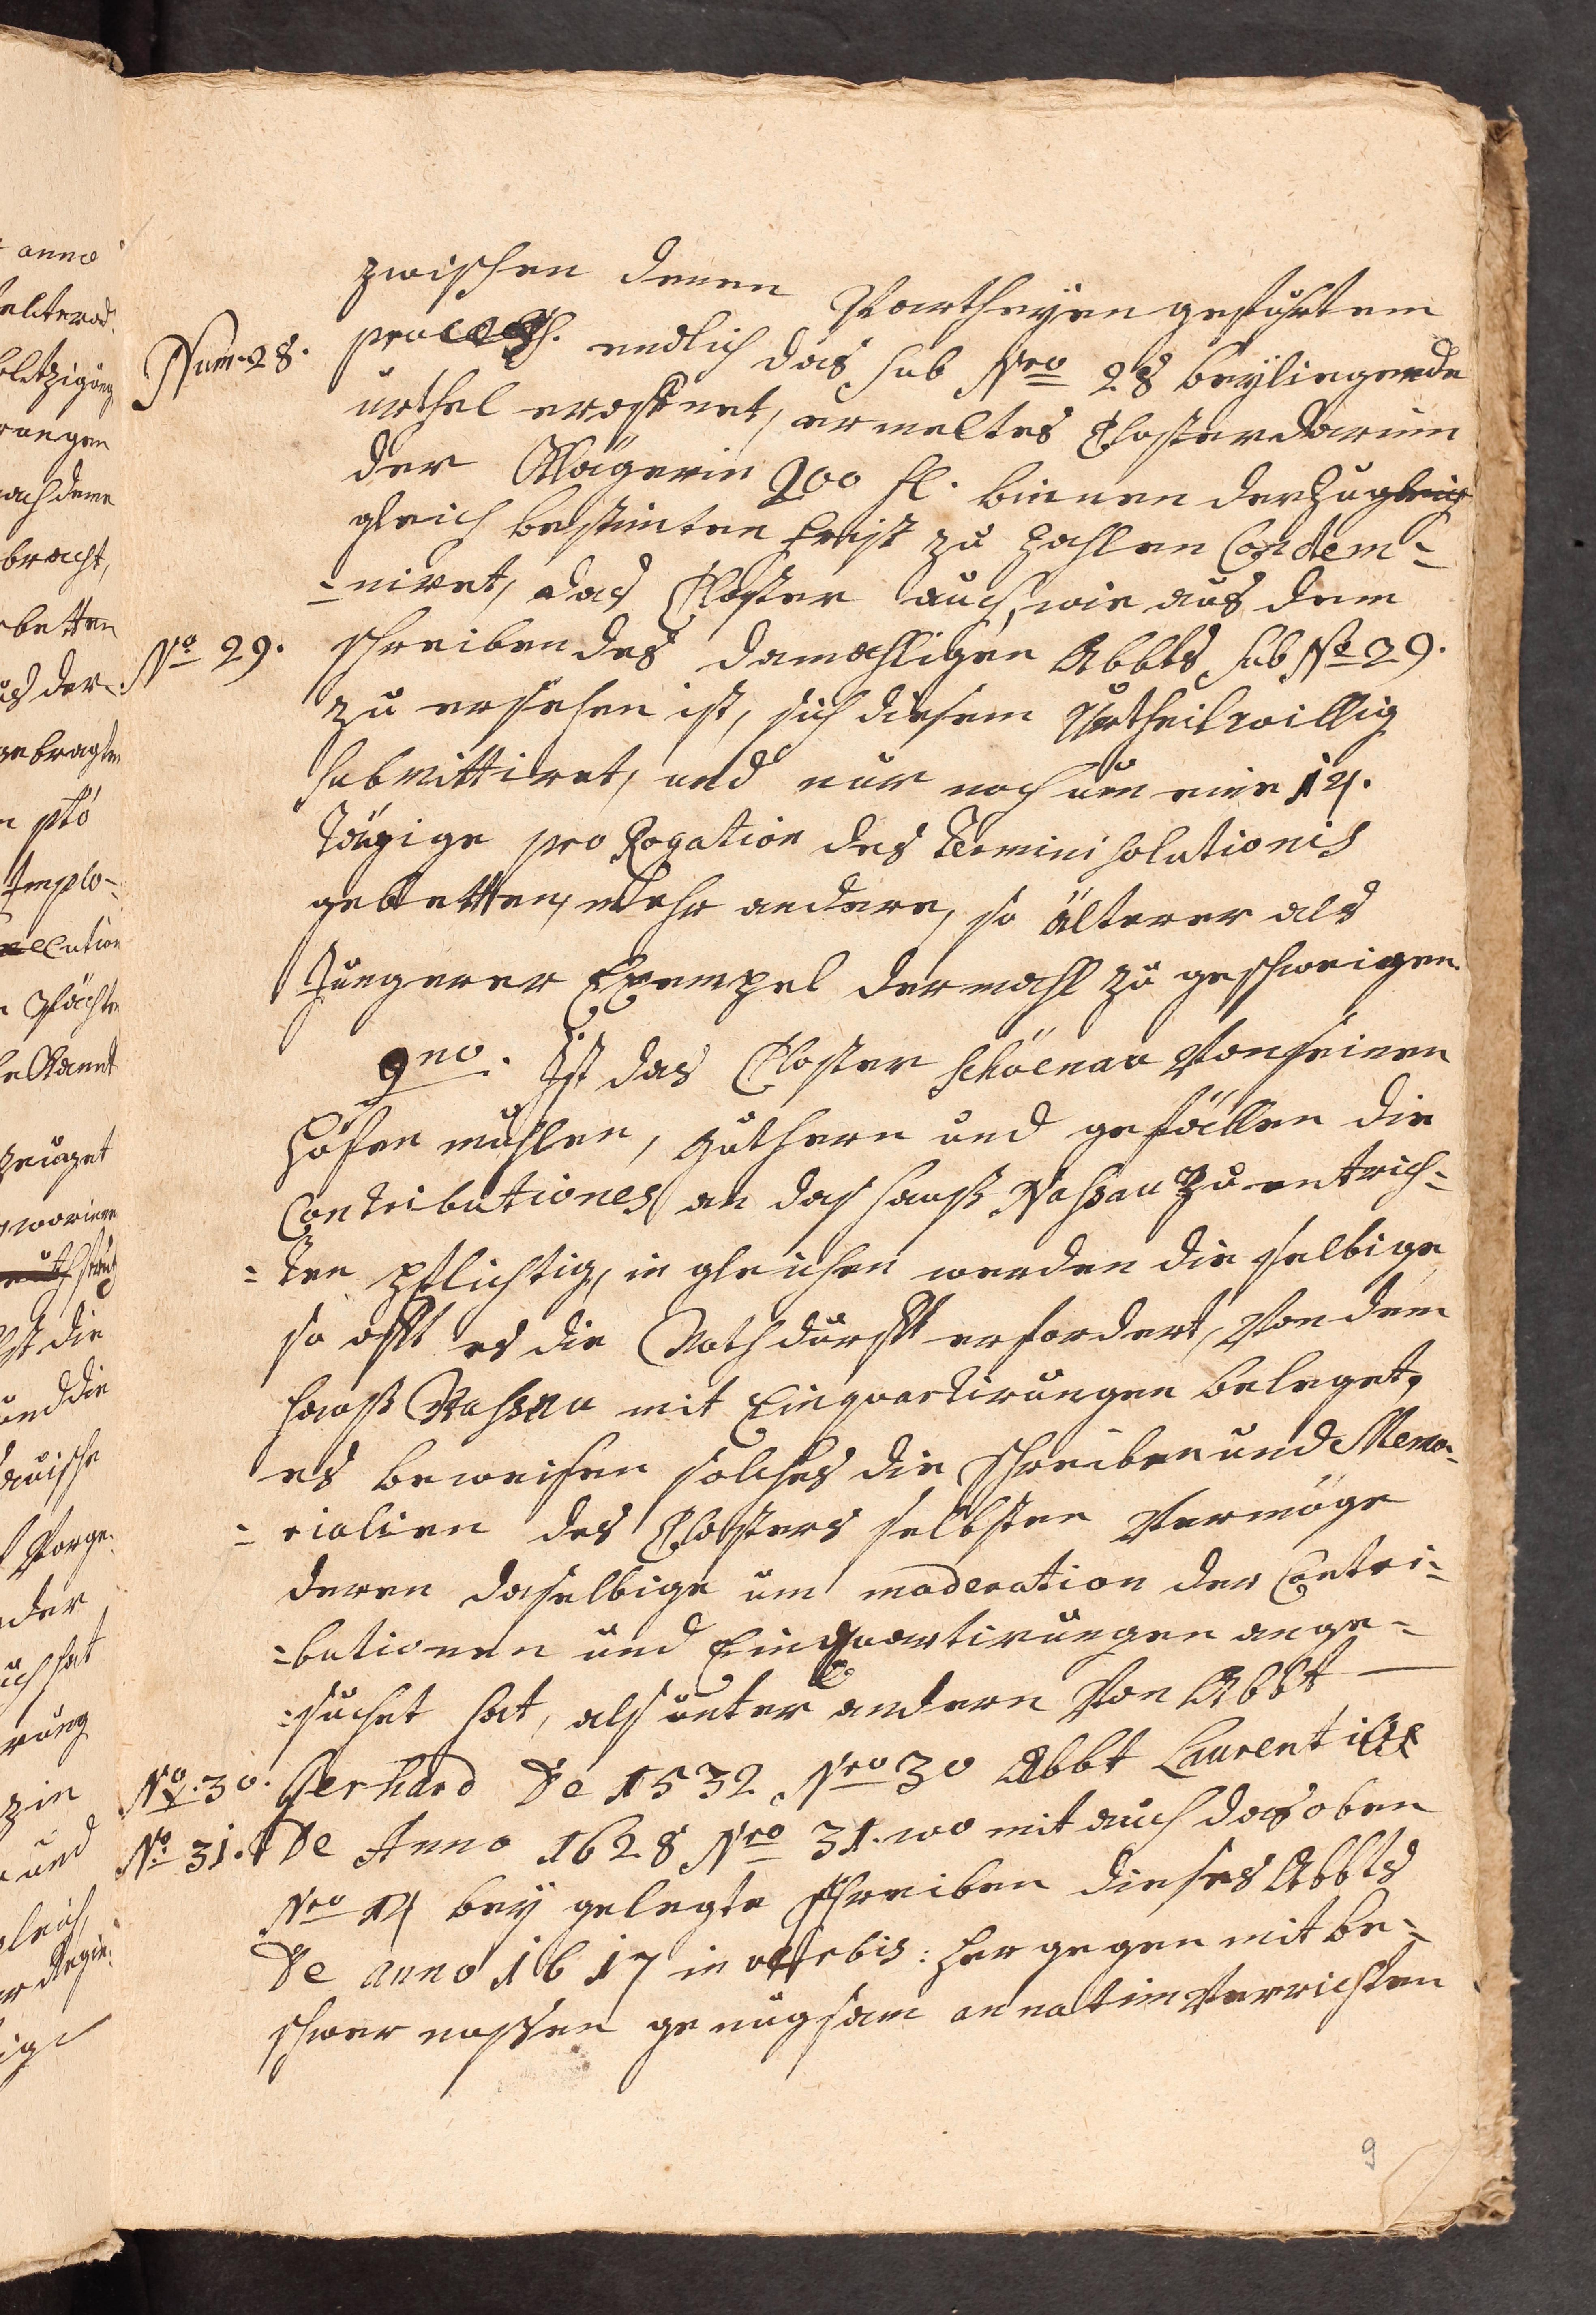 zwischen denen Partheyen geführtem
Num. 28. process. endlich das sub Nro 28 beyliegende
urthel eroffnet, ermeltes Closter darum
der Klägerin 200 fl. binnen der zugleich
gleich bestimten frist zu zahlen Condem-
=niret, das Closter auch, wie aus dem
No 29. schreiben des damahligen Abbts sub No 29.
zu ersehen ist, sich diesem Urtheil willig
submittiret, und nur noch um eine 14.
tägige pro Rogation des Termini solutionis
gebetten, mehr andere, so älterer als
Jüngerer Exempel dermahl zu geschweigen.
9no. Ist das Closter schöenau Von seinen
höfen mühlen, güthern und gefällen die
Contributiones an das hauß Naßau zu entrich-
=ten pflichtig, in gleichen werden die selbige
so offt es die Nothdurfft erfordert, Von dem
hauß Naßau mit Einquartirungen beleget,
es beweisen solches die schreiben und Memo-
=rialien des Closters selbsten Vermöge
deren daselbige um moderation der Contri-
=butionen und Einquartirungen ange-
=suchet hat, als unter andern Von Abbt
No. 30. Gerhard De 1532 Nro 30 Abbt Laurentius
No 31. De Anno 1628 Nro 31. wo mit auch das oben
Nro 14 bey gelegte schreiben dieses Abbts
De anno 1617 in verbis: hergegen mit be-
schwer nassen genugsam Verrichten
9
anno
nach deme
bracht,
betten
aus der
ptó
Implo-
zeuget
ist die
und die
Vorge-
der
auch hat
rung
zin
und
gleich,